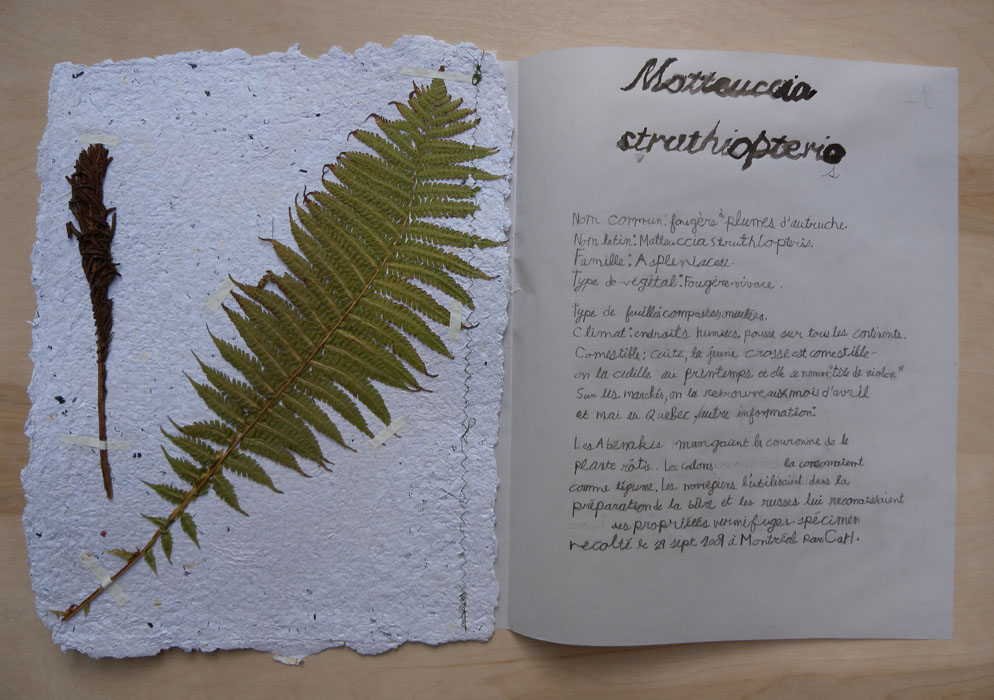 Matteuccia
struthiopteris
s
Nom commun: fougère à plumes d'autruche.
Nom latin: Matteuccia struthiopteris.
Famille: Aspleniaceae.
Type de végétal: Fougère vivace.
Type de feuilles composées,
Climat: endroits humides, pousse sur tous les continents.
Comestible: cuite, la jeune crosse est comestible-
on la cuille au printemps et elle se nomme "tête de violon"
Sur les marchés, on la retrouve aux mois d'avril
et mai au Québec, autre information:
Les Abénakis mangaient la couronne de la
plante rôtie. Les colons la consomaient
comme légume. Les norvégiens l'utilisaient dans la
préparation de la bière et les russes lui reconaissaient
des propriétés vermifuges spécimen
récolté le sept à Montréal par